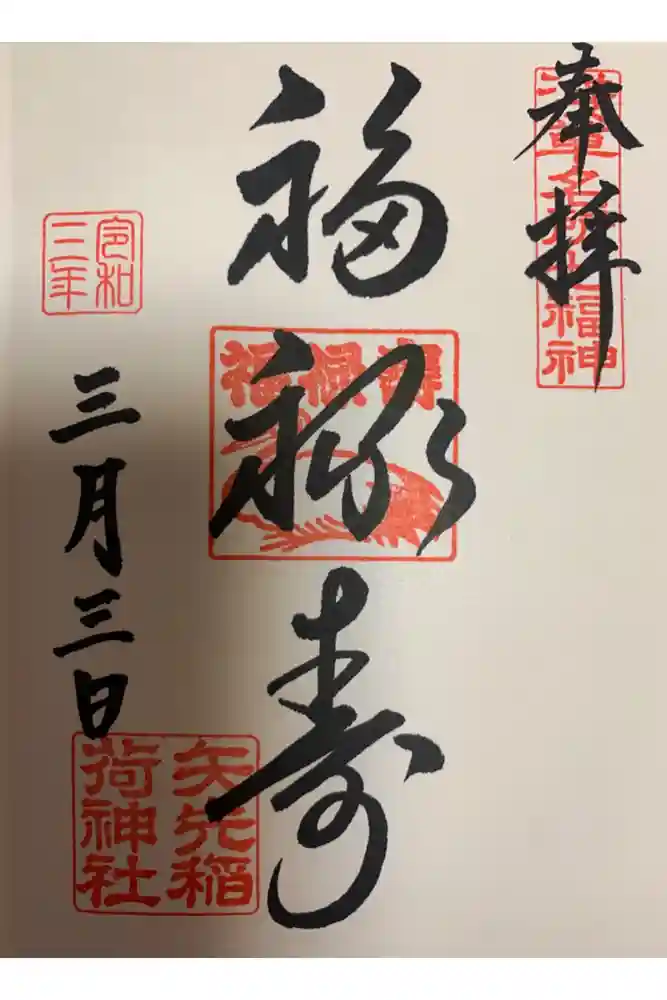 奉拝
浅草名所七福神
福禄寿
福禄寿
令和
三年
三月三日
矢先稲
荷神社